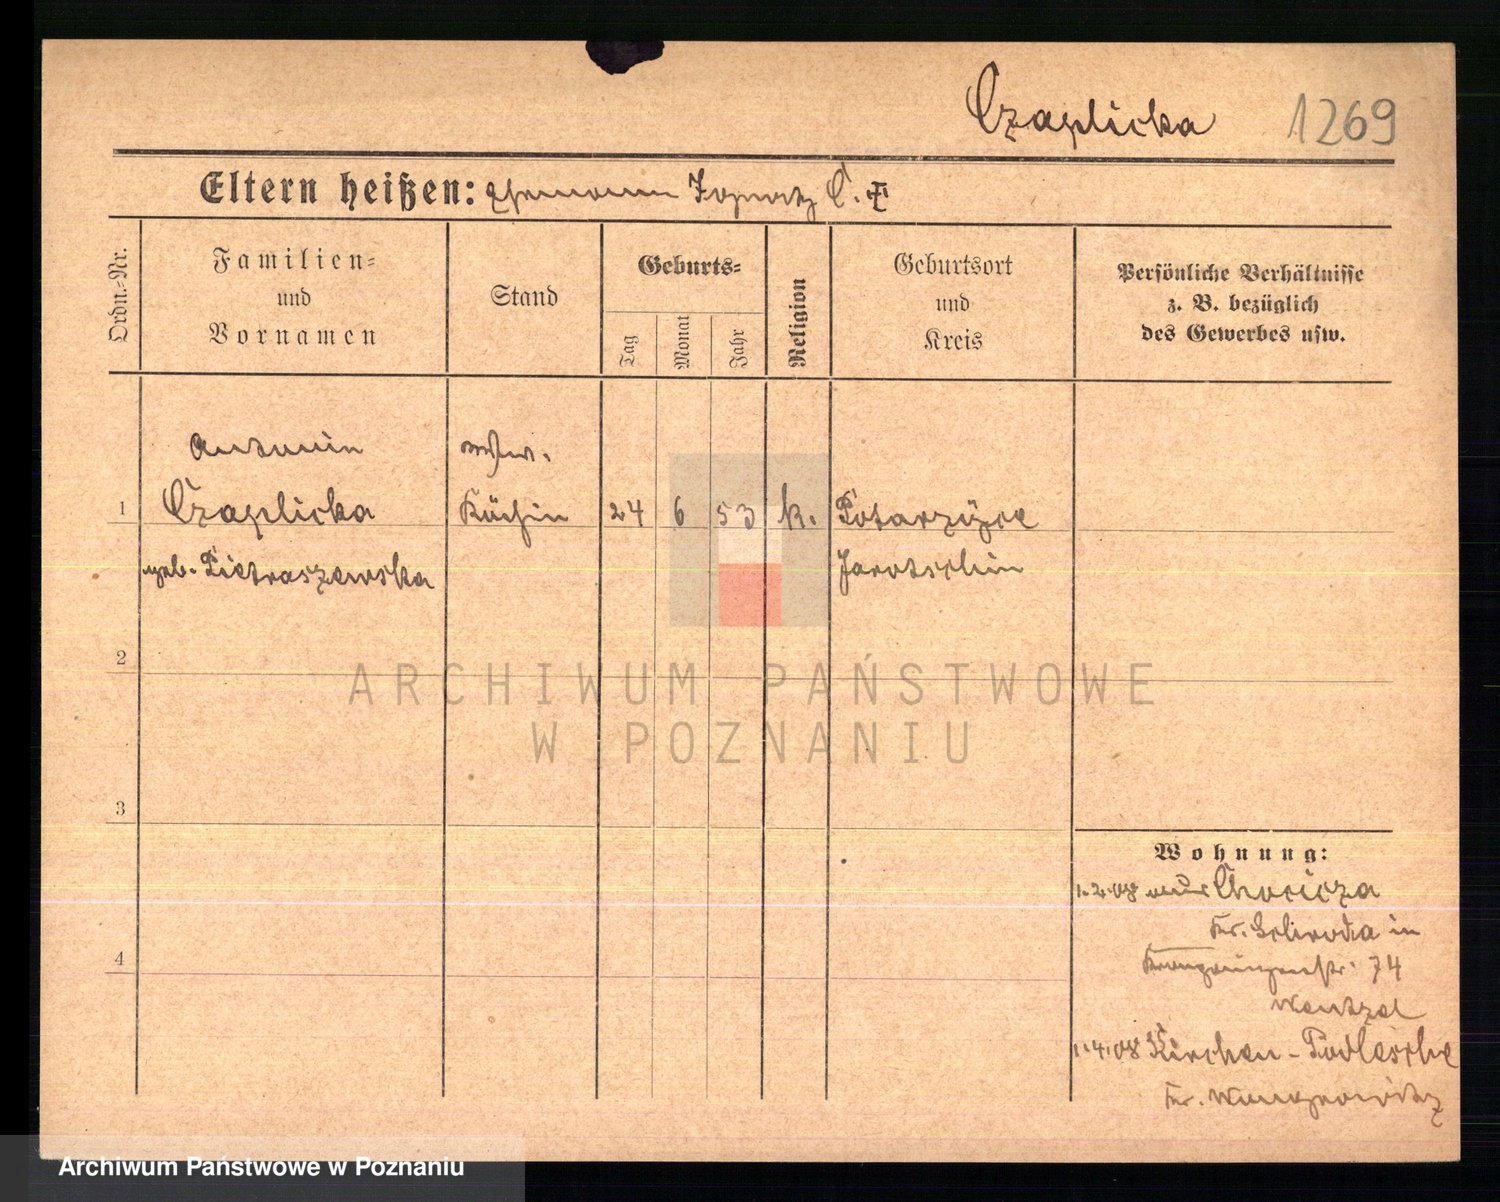 Czaplicka 1269
Eltern heißen: Ehemann Ignatz C. †
Ordn.-Nr.
Familien-
und
Vornamen
Stand
Geburts-
Tag
Monat
Jahr
Religion
Geburtsort
und
Kreis
Persönliche Verhältnisse
z. B. bezüglich
des Gewerbes usw.
Antonin
1 Czaplicka Köchin 24 6 53 k. Potarzyce
geb. Pietraszewska Jarotschin
2
3
4
Wohnung:
1.2.08 aus Chocicza
Kr. Schroda in
Kronprinzenstr. 74
Wentzel
1.4.08 Kirchen-Podlesche
Kr. Wongrowitz
ARCHIWUM PAŃSTWOWE
W POZNANIU
Archiwum Państwowe w Poznaniu